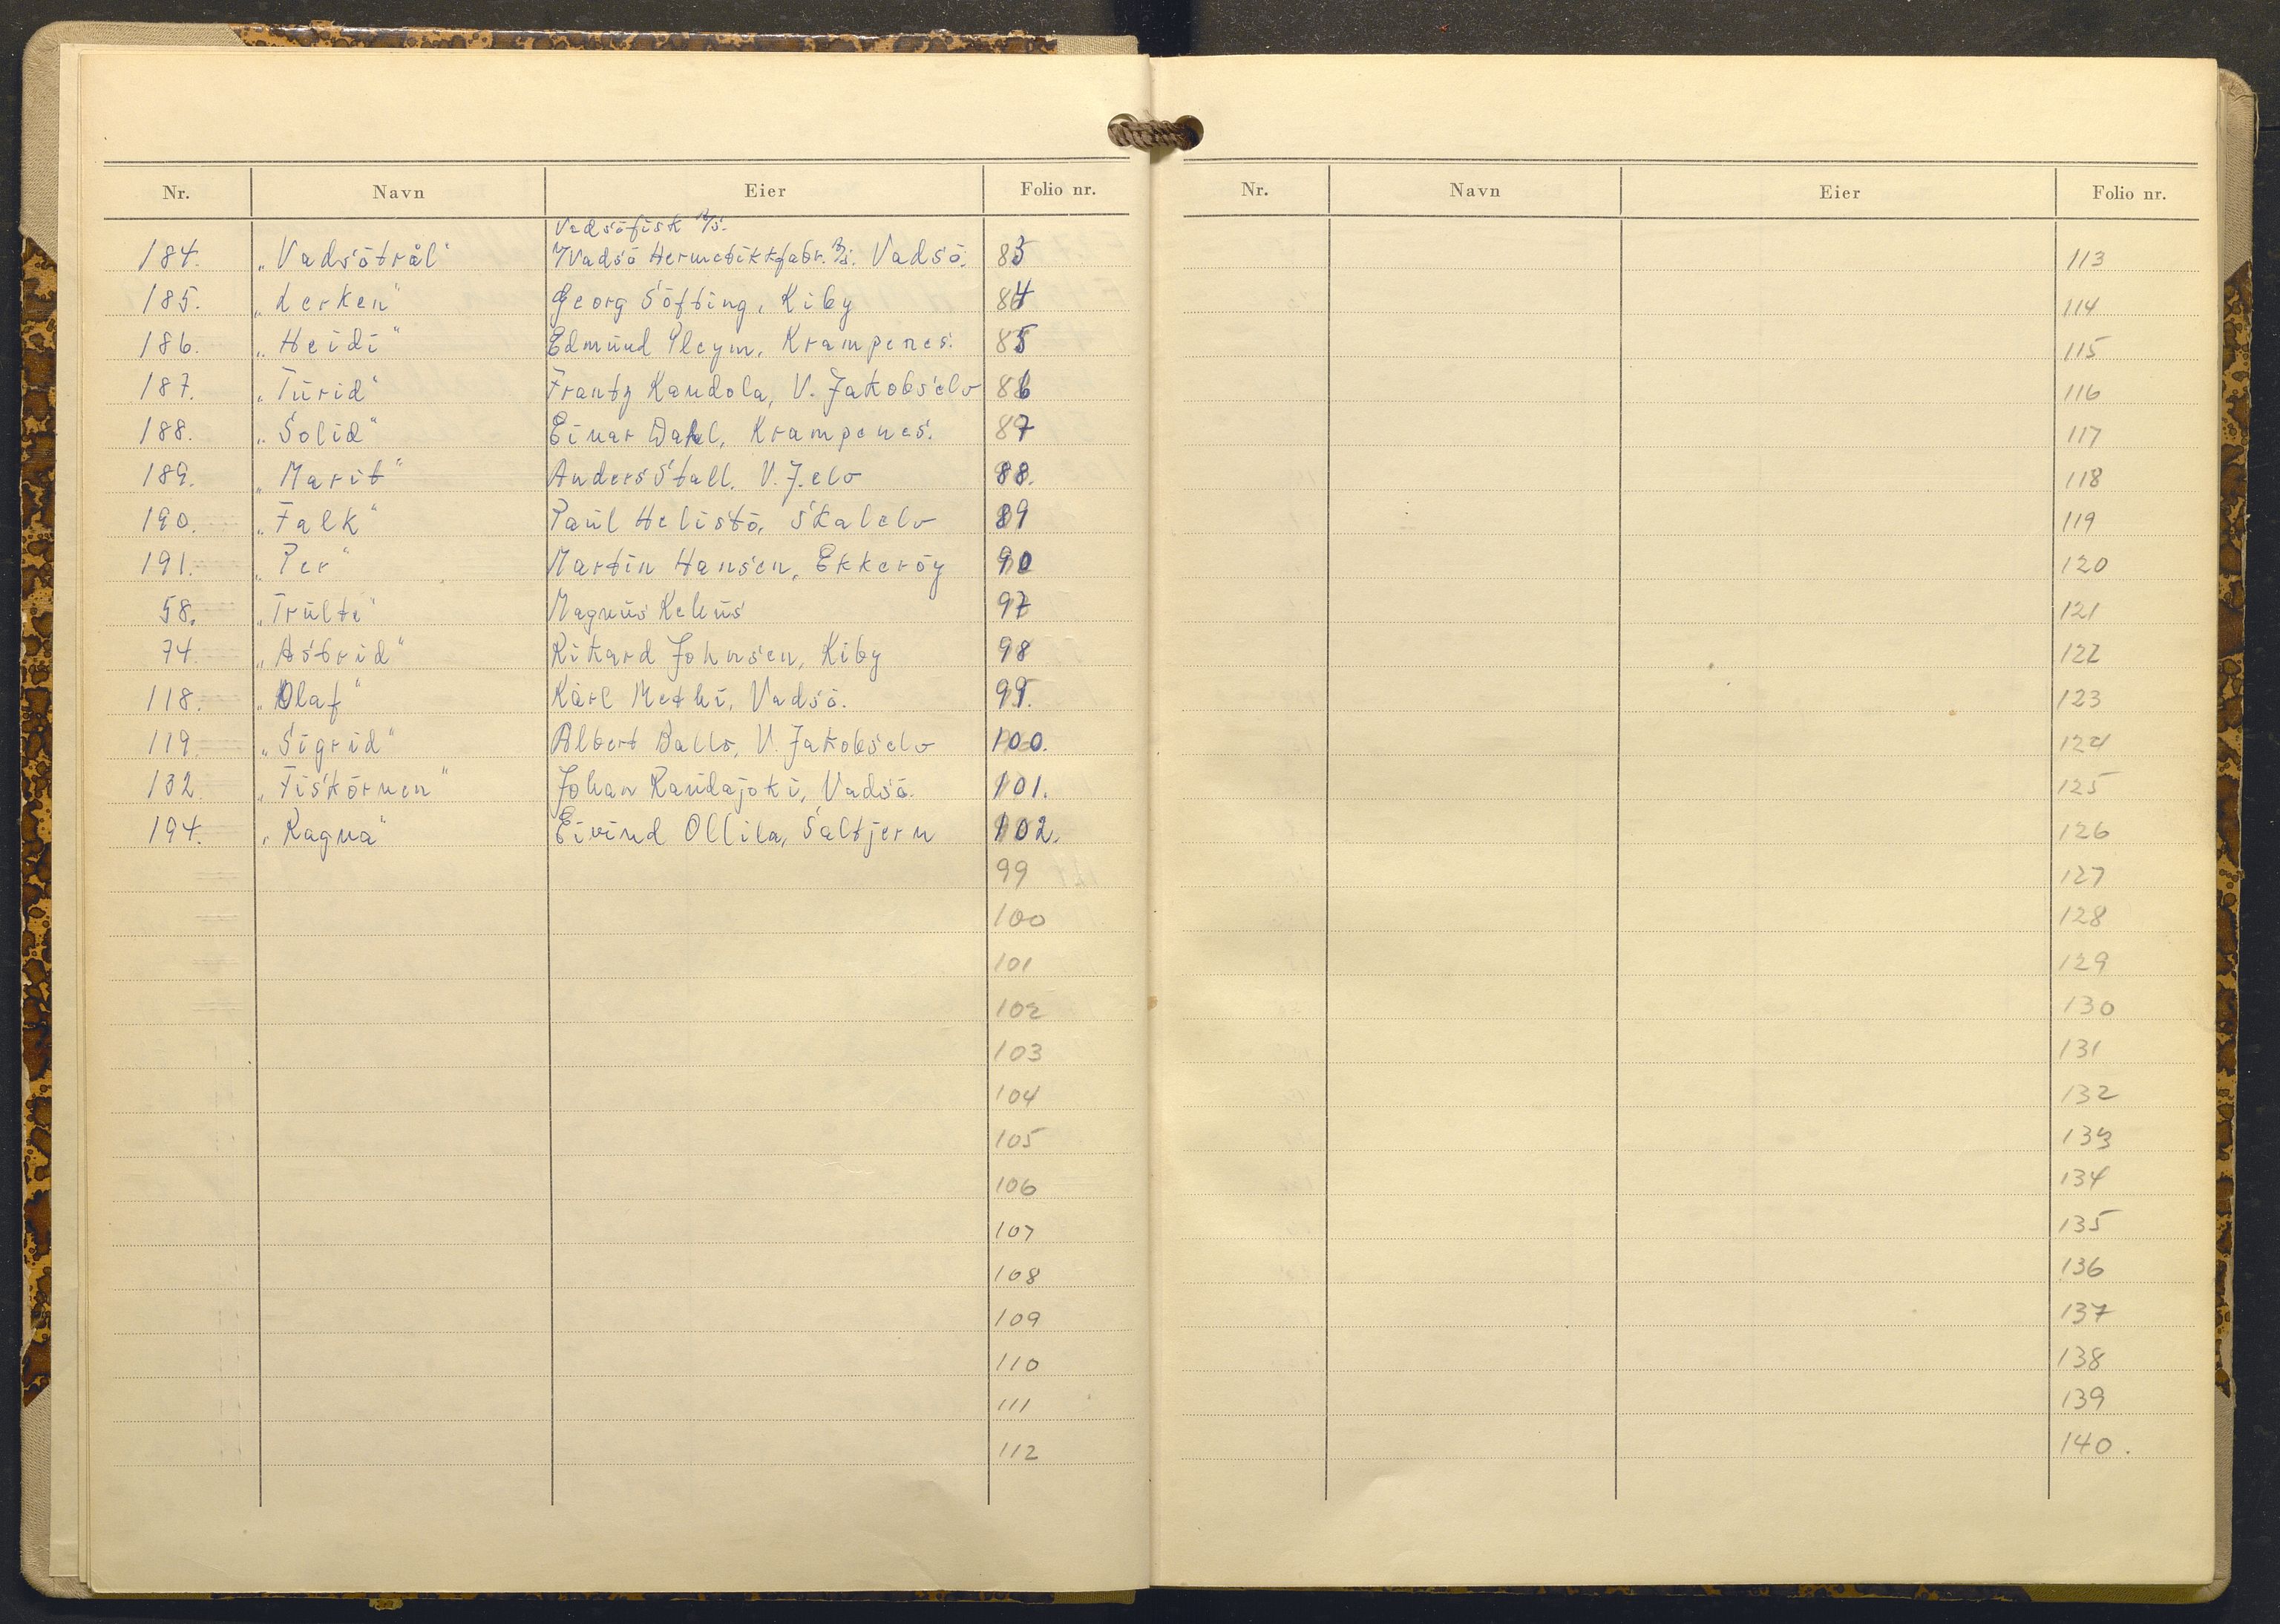 Nr. Navn Eier Folio nr.
Vadsöfisk A/S.
184. „Vadsötrål" Vadsö Hermetikkfabr. A/S. Vadsö. 83
185. „Lerken" Georg Söfting, Kiby 84
186. „Heidi" Edmund Pleym, Krampenes. 85
187. „Turid" Frantz Kandola, V. Jakobselv 86
188. „Solid" Einar Dahl, Krampenes. 87
189. „Marit" Anders Stall. V. J.elv 88.
190. „Falk" Paul Helistö, Skalelv 89
191. „Per" Martin Hansen, Ekkeröy 90
58. „Trulte" Magnus Kehus 97
74. „Astrid" Rikard Johnsen, Kiby 98
118. „Olaf" Karl Methi, Vadsö. 99.
119. „Sigrid" Albert Ballo, V. Jakobselv 100.
132. „Fiskörnen" Johan Randajoki, Vadsö. 101.
194. „Ragna" Eivind Ollila, Saltjern 102.
99
100
101
102
103
104
105
106
107
108
109
110
111
112
Nr. Navn Eier Folio nr.
113
114
115
116
117
118
119
120
121
122
123
124
125
126
127
128
129
130
131
132
133
134
135
136
137
138
139
140.